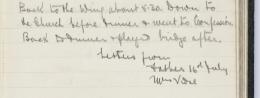 Back to the Wing about 5.20. Down to
the Church before dinner & went to Confession
Back to dinner & played bridge after.
Letters from
Father 16th July
Mrs